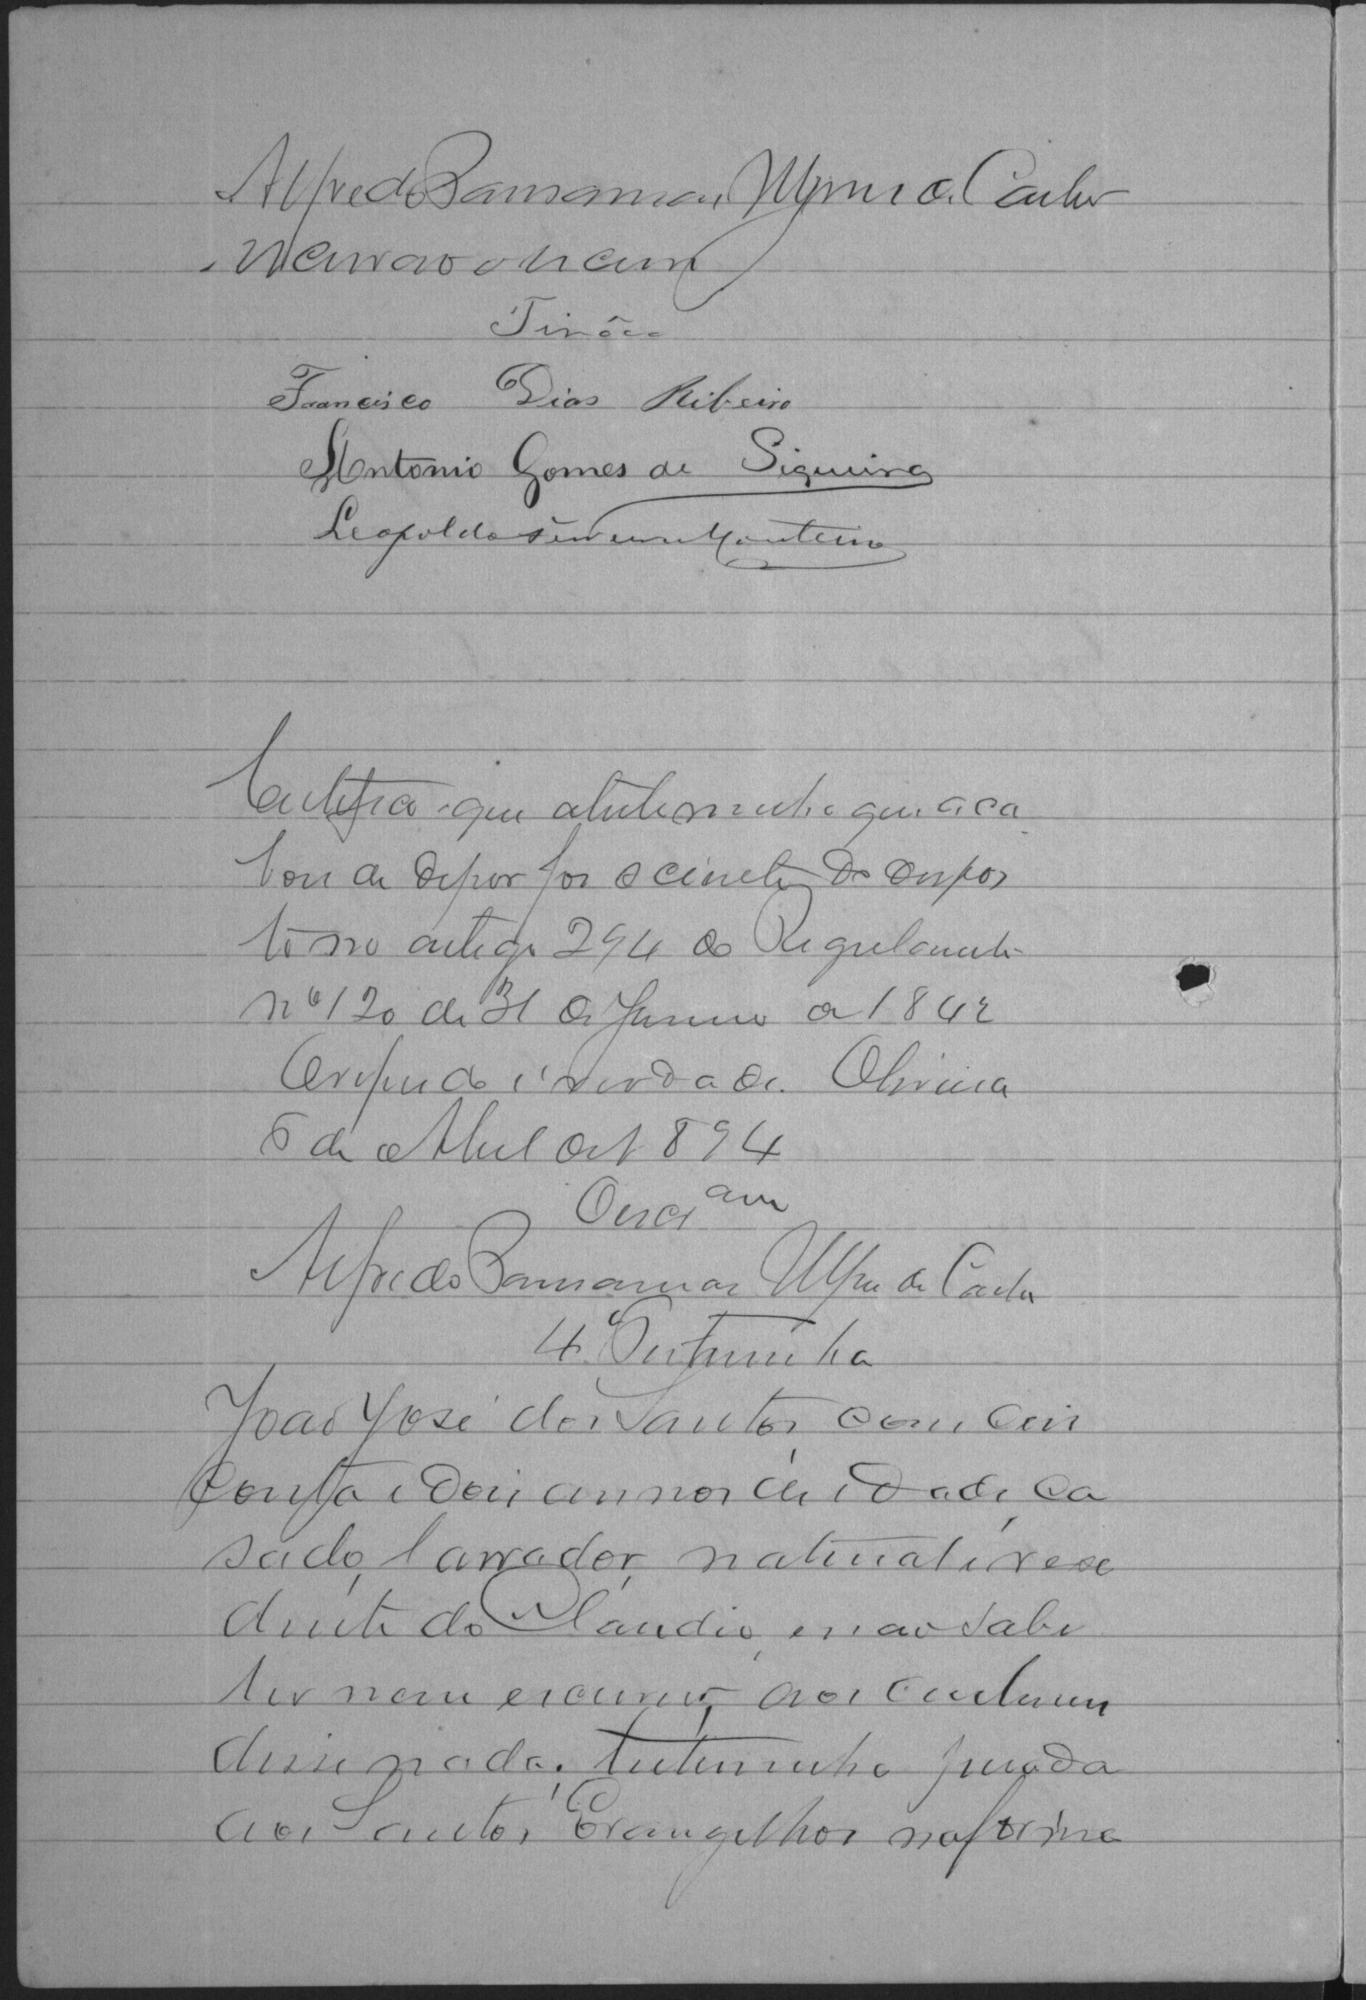 Alfredo Parnamas de Castro
escrivão o escrevi
Tinôco
Francisco Dias Ribeiro
Antonio Gomes de Siqueira
Leopoldo Monteiro
Certifico que a testemunha que aca
bou de depor foi sciente do dispos
to no artigo 294 do Regulamento
nº 120 de 31 de Janeiro de 1842
O referido é verdade. Oliveira
6 de Abril de 1894
O escram
Alfredo Parnamas de Castro
4ª Testemunha
João José dos Santos, com cin
coenta e dois annos de idade, ca
sado, lavrador, natural e resi
dente do Claudio, e não sabe
ler nem escrever, aos costumes
disse nada; testemunha jurada
aos Santos Evangelhos na forma